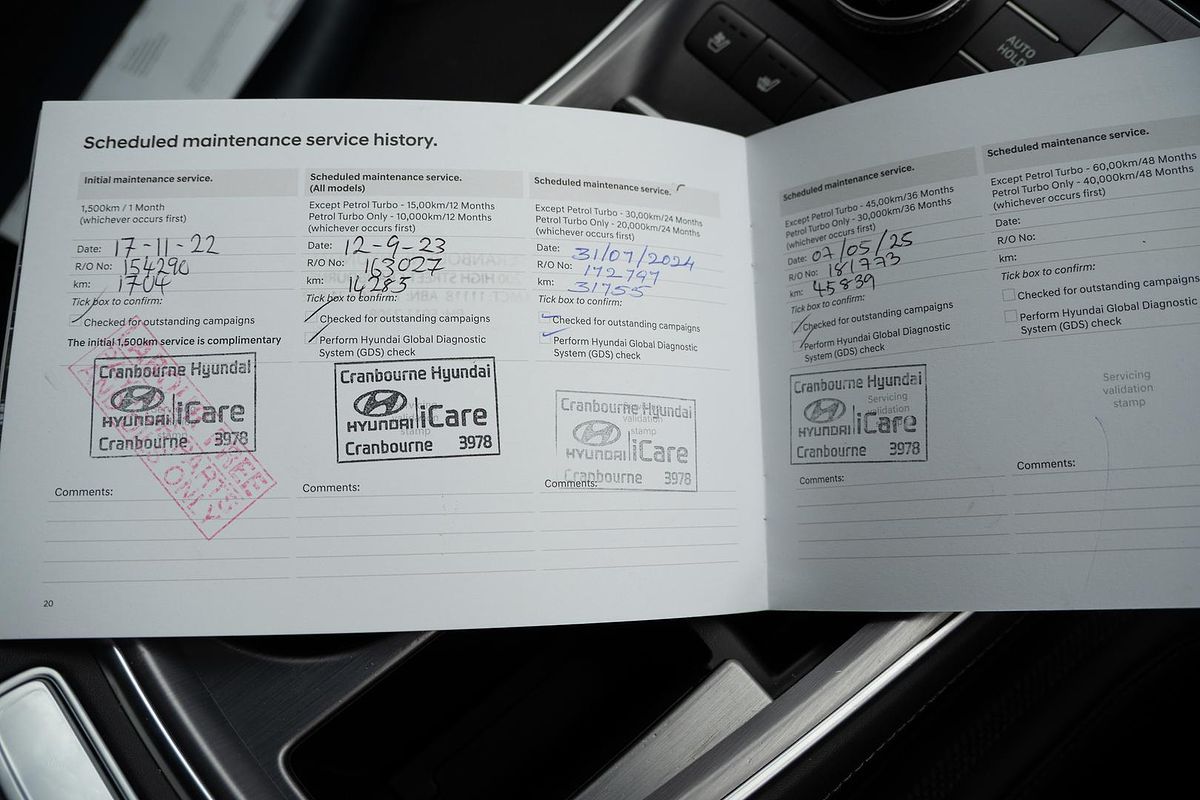 AUTO
HOLD
Scheduled maintenance service history.
Initial maintenance service.
1,500km / 1 Month
(whichever occurs first)
Date: 17-11-22
R/O No: 154290
km: 1704
Tick box to confirm:
Checked for outstanding campaigns
The initial 1,500km service is complimentary
Cranbourne Hyundai
HYUNDAI iCare
Cranbourne 3978
ONLY
Comments:
Scheduled maintenance service.
(All models)
Except Petrol Turbo - 15,00km/12 Months
Petrol Turbo Only - 10,000km/12 Months
(whichever occurs first)
Date: 12-9-23
R/O No: 163027
km: 14285
Tick box to confirm:
Checked for outstanding campaigns
Perform Hyundai Global Diagnostic
System (GDS) check
Cranbourne Hyundai
HYUNDAI iCare
Cranbourne 3978
Comments:
Scheduled maintenance service.
Except Petrol Turbo - 30,00km/24 Months
Petrol Turbo Only - 20,000km/24 Months
(whichever occurs first)
Date: 31/07/2024
R/O No: 172797
km: 31755
Tick box to confirm:
Checked for outstanding campaigns
Perform Hyundai Global Diagnostic
System (GDS) check
Cranbourne Hyundai
validation
stamp
HYUNDAI iCare
Cranbourne 3978
Comments:
20
Scheduled maintenance service.
Except Petrol Turbo - 45,00km/36 Months
Petrol Turbo Only - 30,000km/36 Months
(whichever occurs first)
Date: 07/05/25
R/O No: 181773
km: 45839
Tick box to confirm:
Checked for outstanding campaigns
Perform Hyundai Global Diagnostic
System (GDS) check
Cranbourne Hyundai
Servicing
validation
HYUNDAI iCare
Cranbourne 3978
Comments:
Scheduled maintenance service.
Except Petrol Turbo - 60,00km/48 Months
Petrol Turbo Only - 40,000km/48 Months
(whichever occurs first)
Date:
R/O No:
km:
Tick box to confirm:
Checked for outstanding campaigns
Perform Hyundai Global Diagnostic
System (GDS) check
Servicing
validation
stamp
Comments: